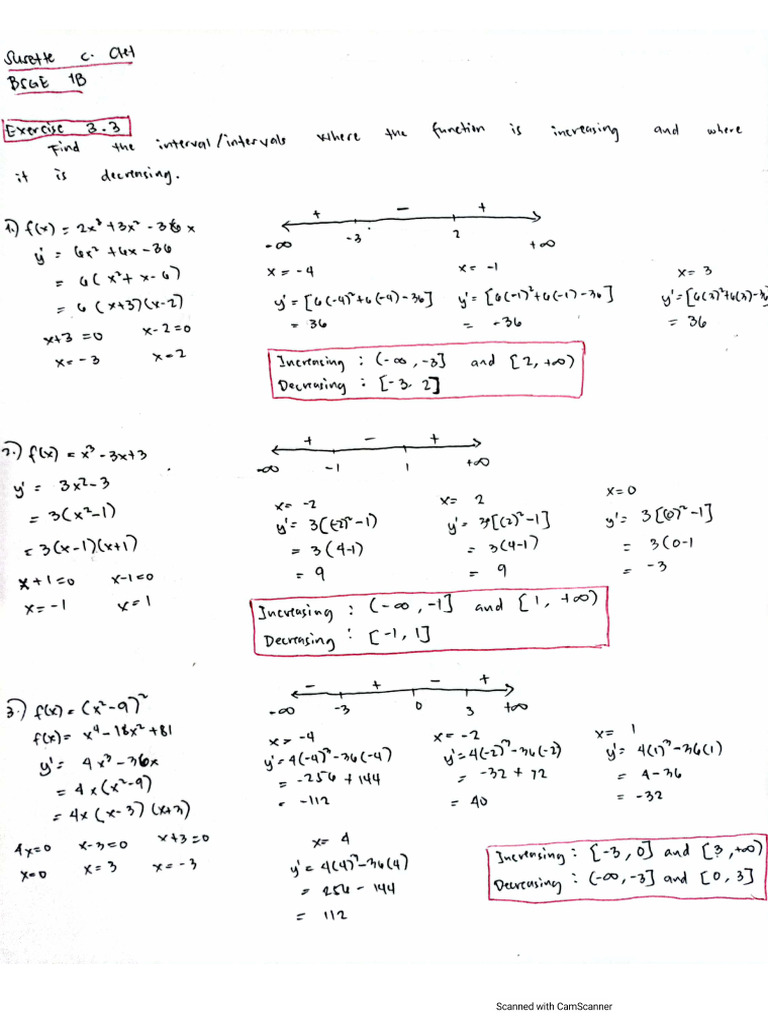 Susette C.
BSGE 1B
Exercise 3.3
Find the interval/intervals where the function is increasing and where
it is decreasing.
1.) f(x) = 2x³ + 3x² - 36x
y' = 6x² + 6x - 36
= 6(x² + x - 6)
= 6(x+3)(x-2)
x+3 = 0 x-2 = 0
x = -3 x = 2
+ - +
-∞ -3 2 +∞
x = -4 x = -1 x = 3
y' = [6(-4)² + 6(-4) - 36] y' = [6(-1)² + 6(-1) - 36] y' = [6(3)² + 6(3) - 3
= 36 = -36 = 36
Increasing : (-∞, -3] and [2, +∞)
Decreasing : [-3, 2]
2.) f(x) = x³ - 3x + 3
y' = 3x² - 3
= 3(x² - 1)
= 3(x-1)(x+1)
x+1 = 0 x-1 = 0
x = -1 x = 1
+ - +
-∞ -1 1 +∞
x = -2 x = 2 x = 0
y' = 3((-2)² - 1) y' = 3[(2)² - 1] y' = 3[(0)² - 1]
= 3(4-1) = 3(4-1) = 3(0-1
= 9 = 9 = -3
Increasing : (-∞, -1] and [1, +∞)
Decreasing : [-1, 1]
3.) f(x) = (x² - 9)²
f(x) = x⁴ - 18x² + 81
y' = 4x³ - 36x
= 4x(x² - 9)
= 4x(x-3)(x+3)
4x = 0 x-3 = 0 x+3 = 0
x = 0 x = 3 x = -3
- + - +
-∞ -3 0 3 +∞
x = -4 x = -2 x = 1
y' = 4(-4)³ - 36(-4) y' = 4(-2)³ - 36(-2) y' = 4(1)³ - 36(1)
= -256 + 144 = -32 + 72 = 4 - 36
= -112 = 40 = -32
x = 4
y' = 4(4)³ - 36(4)
= 256 - 144
= 112
Increasing : [-3, 0] and [3, +∞)
Decreasing : (-∞, -3] and [0, 3]
Scanned with CamScanner